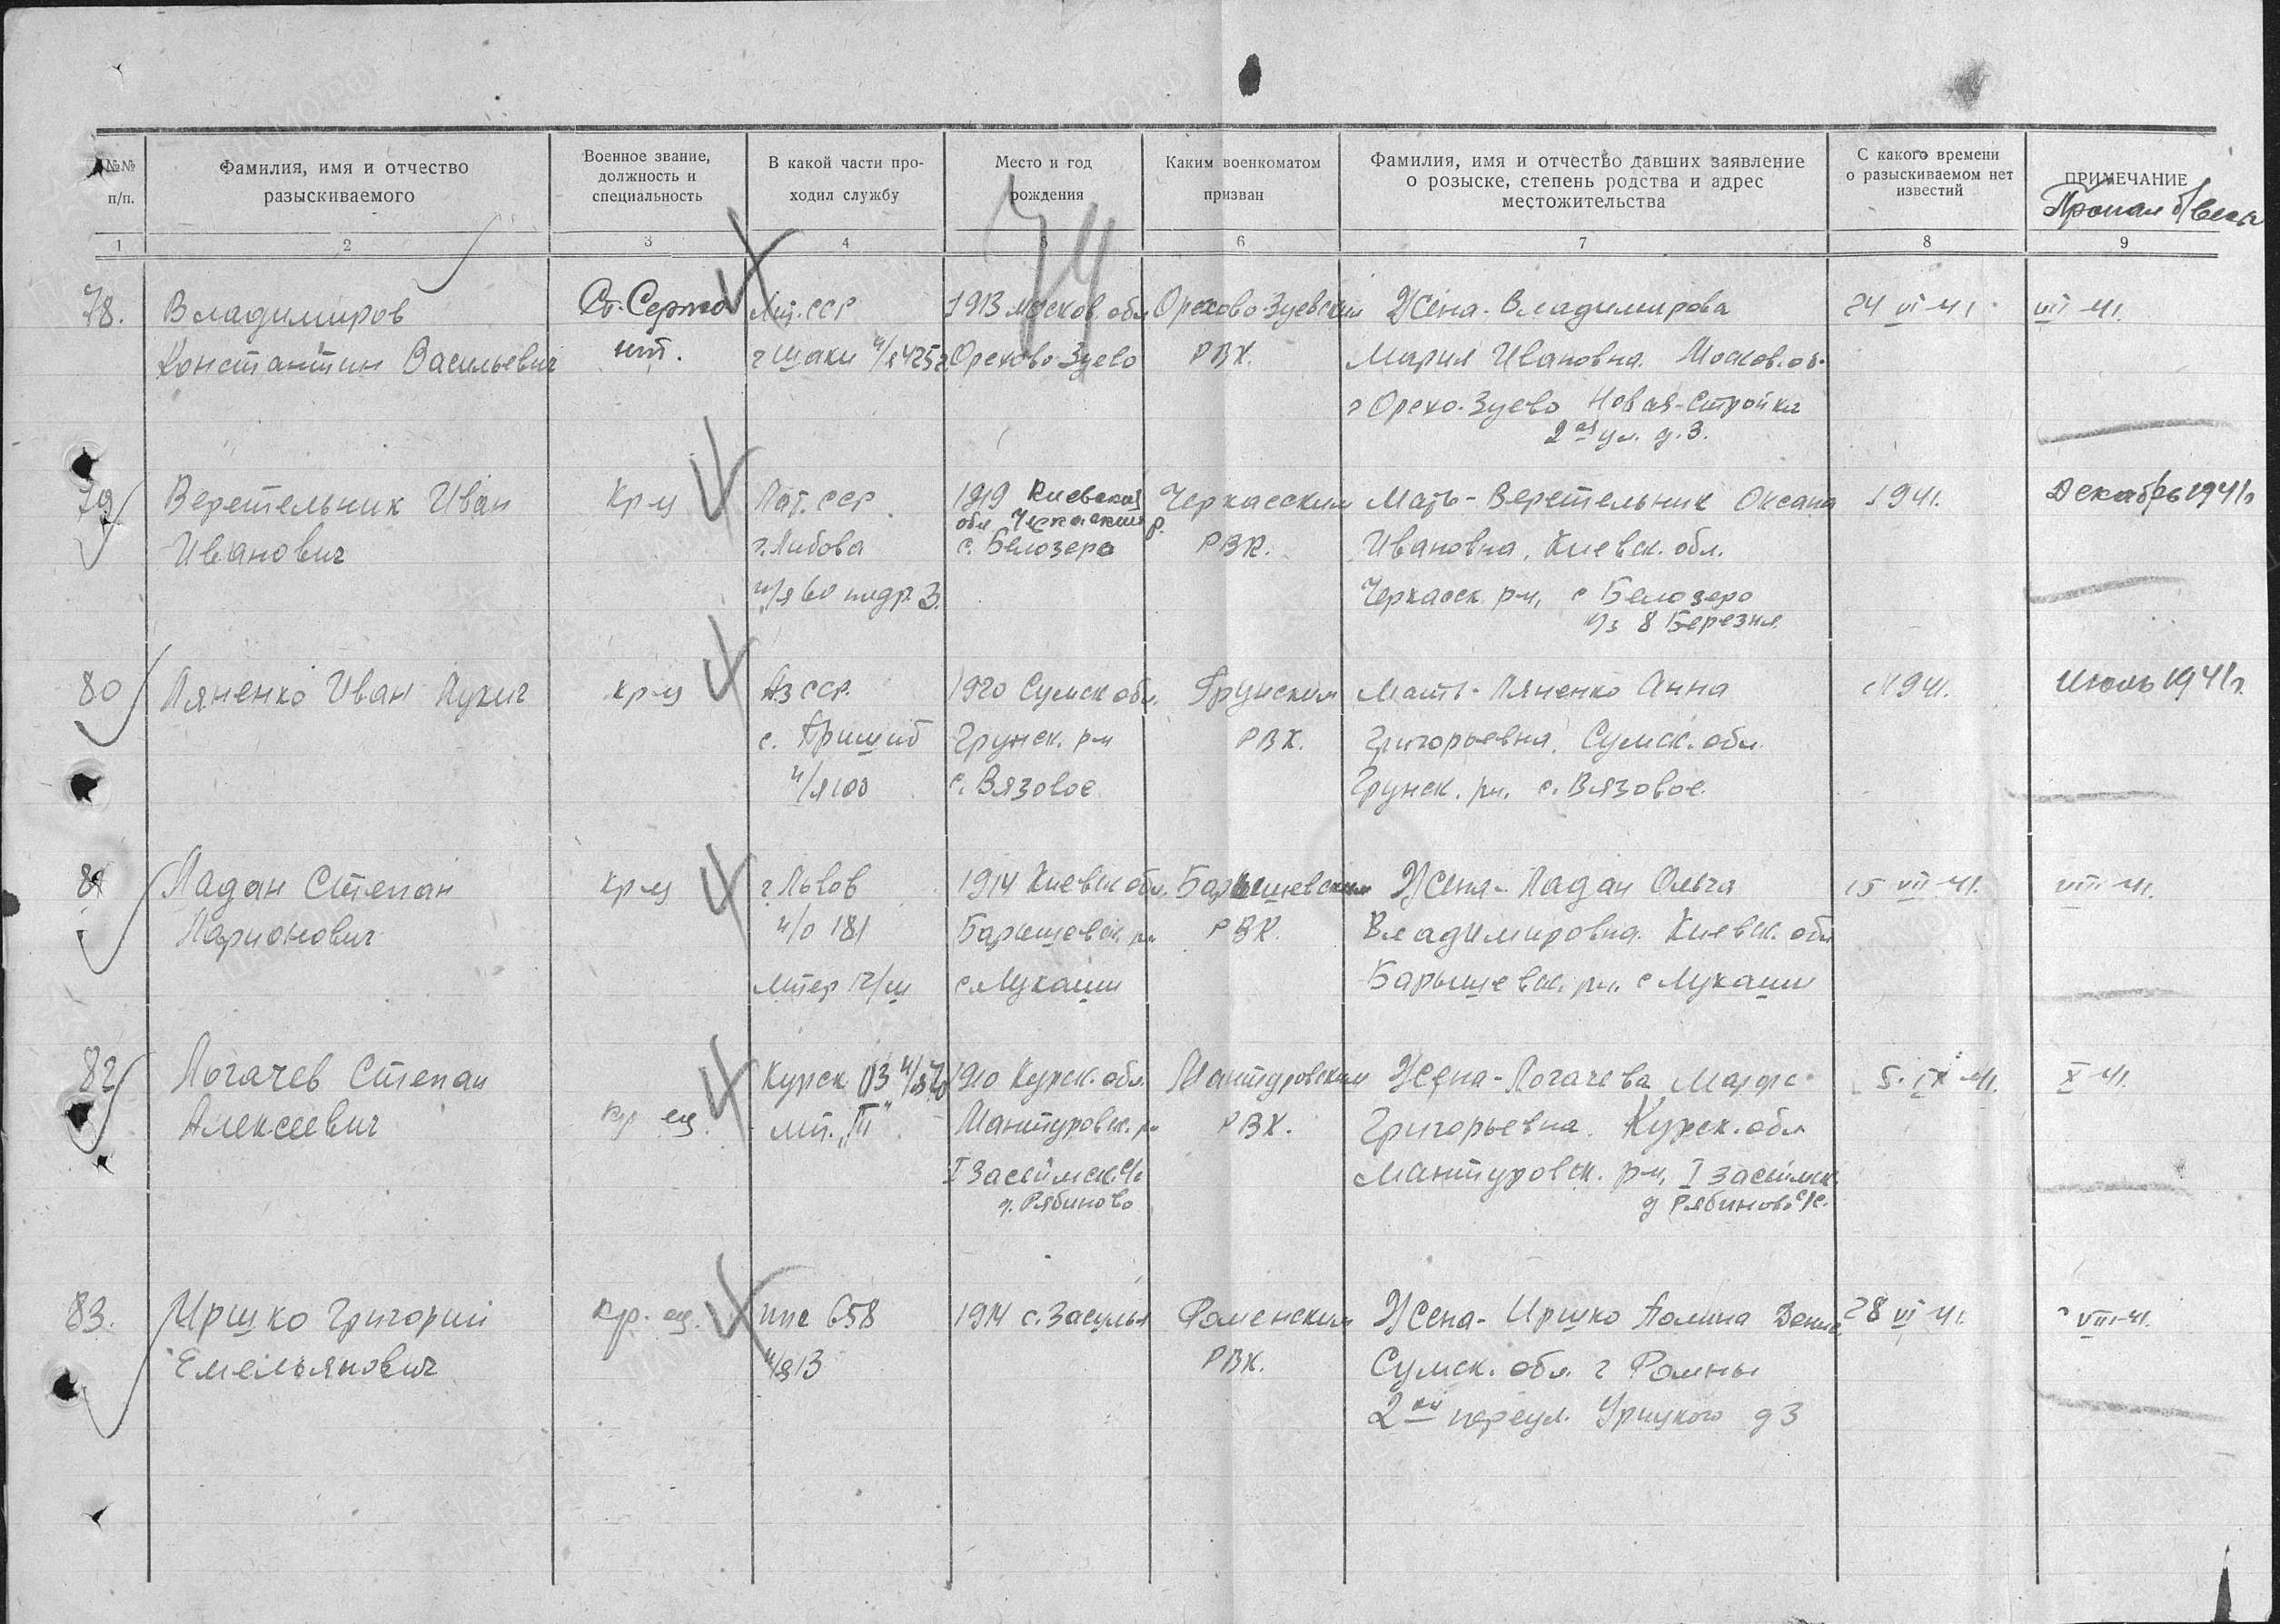 №№ п/п.
Фамилия, имя и отчество
разыскиваемого
Военное звание,
должность и
специальность
В какой части про-
ходил службу
Место и год
рождения
Каким военкоматом
призван
Фамилия, имя и отчество давших заявление
о розыске, степень родства и адрес
местожительства
С какого времени
о разыскиваемом нет
известий
ПРИМЕЧАНИЕ
Пропал б/вести
74
1 2 3 4 5 6 7 8 9
78.
Владимиров
Константин Васильевич
Ст. Сержа
нт.
Лит. ССР
г Шаки п/я 425
1913 Москов. обл
Орехово Зуево
Орехово-Зуевским
РВК.
Жена - Владимирова
Мария Ивановна. Москов. об.
г Орехо-Зуево Новая-Стройка
2 ая ул. д. 3.
24 VI 41
VII 41.
79
Веретельник Иван
Иванович
Кр-ц
Лат. ССР
г. Либова
п/я 60 подр. 3.
1919 Киевской
обл Черкаский р.
с. Белозеро
Черкасским
РВК.
Мать - Веретельник Оксана
Ивановна, Киевск. обл.
Черкасск. р-н, с Белозеро
8 Березня
1941.
Декабрь 1941г
80
Ляненко Иван Лукич
кр-ц
Аз ССР.
с. Пришиб
п/я 100
1920 Сумск обл.
Грунск. р-н
с. Вязовое
Грунским
РВК.
Мать - Ляненко Анна
Григорьевна, Сумск. обл.
Грунск. р-н. с. Вязовое.
1941.
Июль 1941г.
81
Ладан Степан
Ларионович
кр-ц
г. Львов
п/о 181
Литер
1914 Киевск обл.
Барышевск. р-н
с Лукаши
Барышевским
РВК.
Жена - Ладан Ольга
Владимировна. Киевск. обл
Барышевск. р-н. с Лукаши
15 VII 41.
VIII 41.
82
Логачев Степан
Алексеевич
кр-ец.
Курск
лит.
1910 Курск. обл.
Мантуровск. р-н
I Засеймск. с/с
д. Рябиново
Мантуровским
РВК.
Жена - Логачева Марфа
Григорьевна. Курск. обл
Мантуровск. р-н, I Засеймск.
д Рябиново с/с.
5. IX 41.
X 41.
83.
Иршко Григорий
Емельянович
Кр. ец.
ппс 658
п/я 13
1914 с. Засулья
Роменским
РВК.
Жена - Иршко Полина Денис.
Сумск. обл. г Ромны
2 ой переул. Урицкого д 3
28 VI 41.
VIII-41.